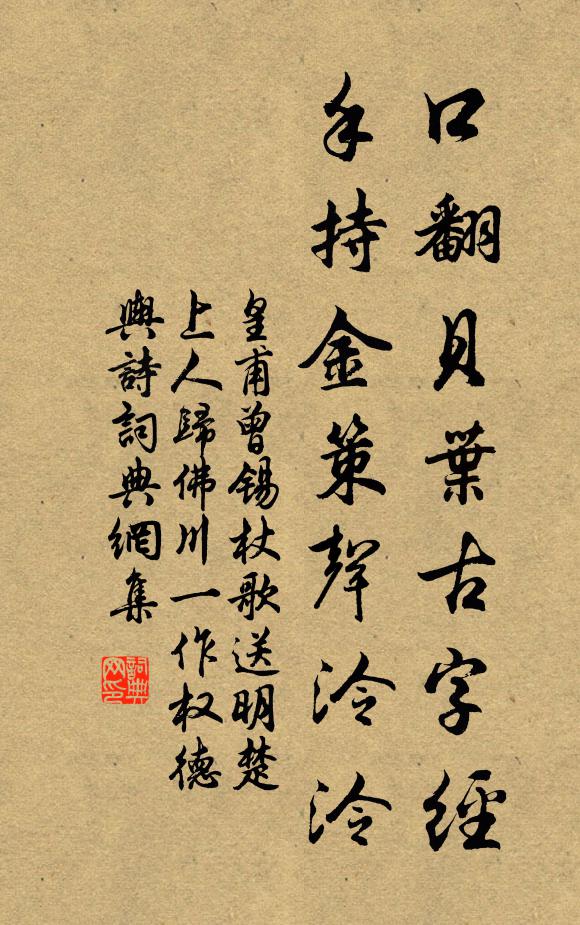 口翻貝葉古字經
手持金策聲泠泠
皇甫曾錫杖歌送明楚
上人歸佛川一作权德
輿詩詞典網集
詞典
网印